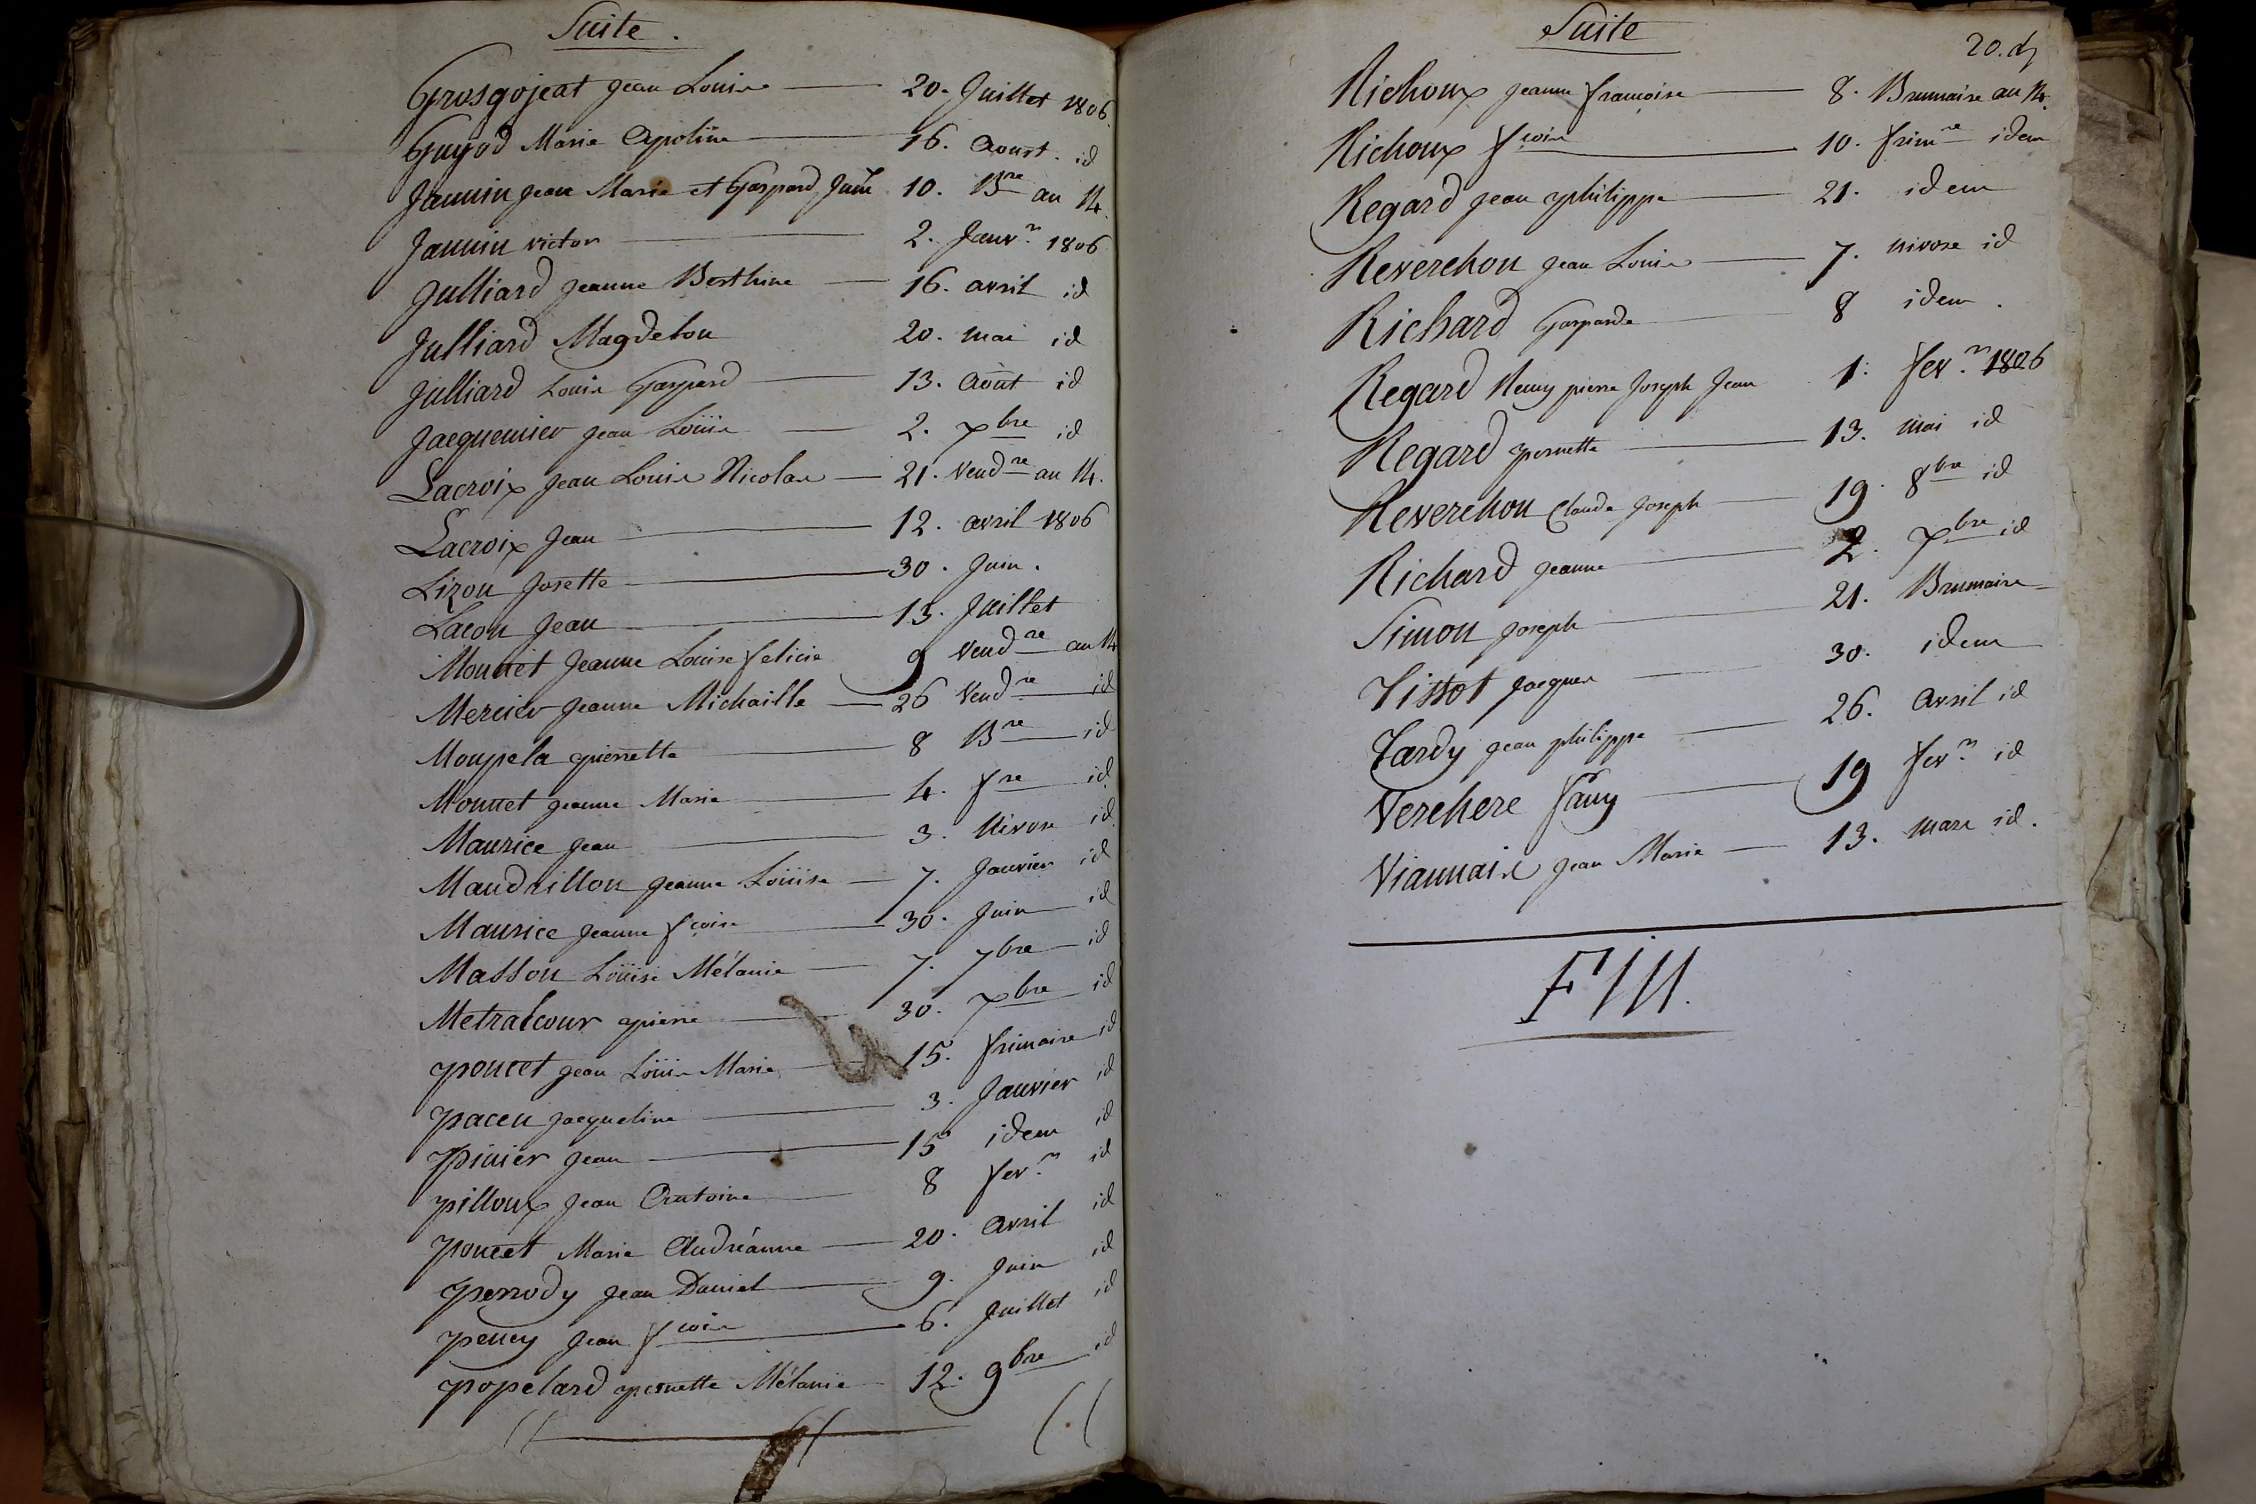 Suite.
Grosgojeat Jean Louis 20. Juillet 1806.
Guyod Marie Apoline 16. Aoust. id
Jannin Jean Marie et Gaspard 10. Bre an 14.
Jannin victor 2. Janvr. 1806
Julliard Jeanne Berthine 16. avril id
Julliard Magdelon 20. mai id
Julliard Louis Gaspard 13. Août id
Jacquemier Jean Loüis 2. 7bre id
Lacroix Jean Louis Nicolas 21. Vendre an 14.
Lacroix Jean 12. avril 1806
Lizon Josette 30. Juin.
Lacon Jean 13. Juillet
Monnet Jeanne Louise felicie 9 Vendre an 14
Mercier Jeanne Michaille 26 Vendre id
Moupela pierrette 8 Bre id
Monnet jeanne Marie 4. fre id
Maurice jean 3. Nivose id
Maudrillon jeanne Loüise 7. Janvier id
Maurice Jeanne fcoise 30. Juin id
Masson Loüise Mélanie 7. 7bre id
Metralcour pierre 30. 7bre id
poncet jean Loüis Marie 15. frimaire id
pacen jacqueline 3. Janvier id
pinier Jean 15 idem id
pilloux Jean Antoine 8 fevr. id
poncet Marie Andréanne 20. Avril id
perrody Jean Daniel 9. Juin id
pency Jean fcois 6. Juillet id
popelard pernette Mélanie 12. 9bre id
Suite
20. d
Richoux Jeanne françoise 8. Brumaire an 14.
Richoux fcoise 10. frimre idem
Regard Jean philippe 21. idem
Reverchon Jean Louis 7. nivose id
Richard Gasparde 8 idem.
Regard Remy pierre Joseph Jean 1. fevr. 1806
Regard pernette 13. mai id
Reverchon Claude Joseph 19. 8bre id
Richard Jeanne 2. 7bre id
Simon Joseph 21. Brumaire
Tissot jacques 30. idem
Tardy jean philippe 26. Avril id
Verchere fany 19 fevr. id
Viannais Jean Marie 13. mars id.
FIN.